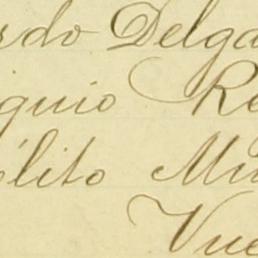 rdo Delga
quio Re
lito Mu
Vue